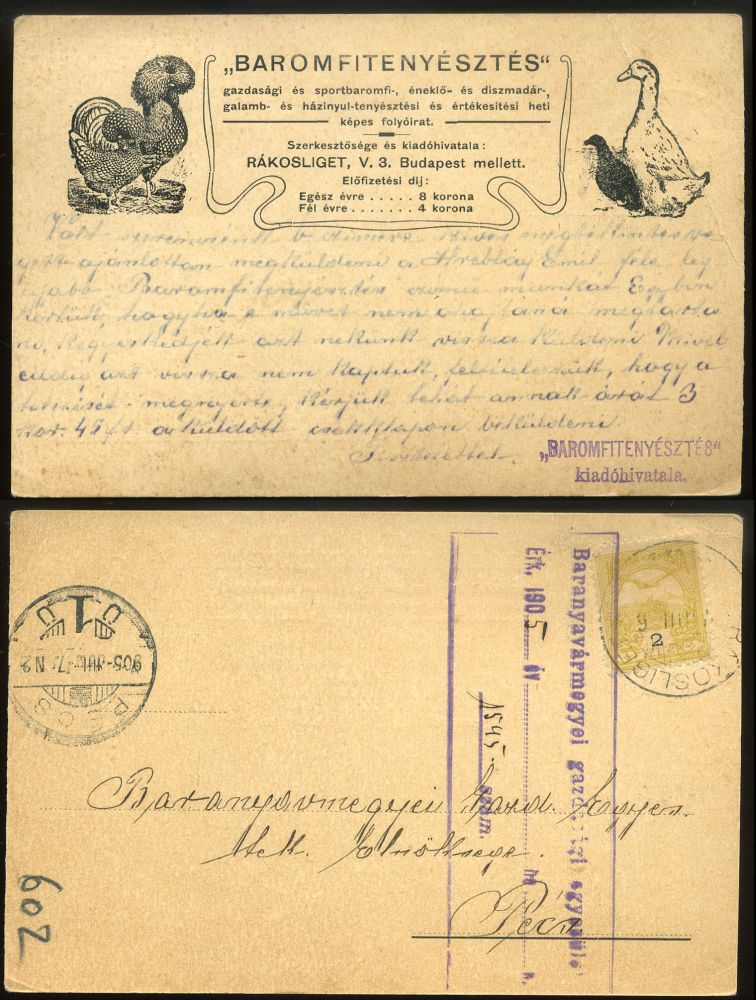 „BAROMFITENYÉSZTÉS“
gazdasági és sportbaromfi-, éneklő- és diszmadár-,
galamb- és házinyul-tenyésztési és értékesitési heti
képes folyóirat.
Szerkesztősége és kiadóhivatala:
RÁKOSLIGET, V. 3. Budapest mellett.
Előfizetési dij:
Egész évre . . . . . 8 korona
Fél évre . . . . . . 4 korona
Volt szerencsénk b. czimére szives megtekintés vé
gett ajánlottan megküldeni a Hreblay Emil féle leg
ujabb Baromfitenyésztés czimü munkát. Egyben
kértük, hogyha e művet nem óhajtaná megtarta
ni, kegyeskedjék azt nekünk vissza küldeni. Mivel
eddig azt vissza nem kaptuk, feltételezzük, hogy a
tetszését megnyerte, kérjük tehát annak árát 3
kor. 45 f. a küldött csekklapon beküldeni
Tisztelettel
„BAROMFITENYÉSZTÉS“
kiadóhivatala.
PÉCS
905 JUL 7 N2
RÁKOSLIGET
2
Baranyavármegyei gazdasági egyesüle
Érk. 1905 év hó n.
1545 szám.
Baranyavmegyei Gazd. Egyes.
tek. Elnöksége.
Pécs
209